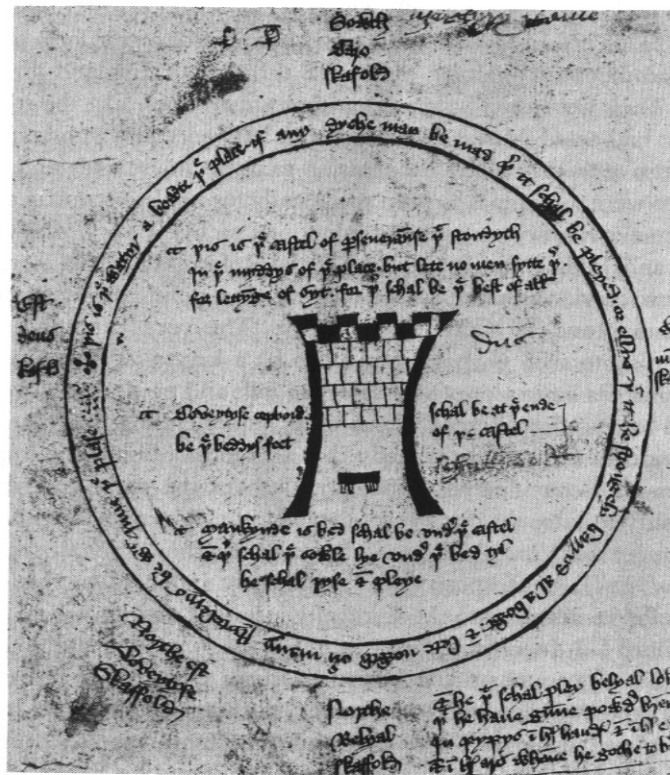 Sowth
Caro
skafold
þis is þe watyr a bowte þe place if any dyche may be mad þer it schal be pleyed or ellys þat it be strongely barryd al a bowt & lete nowth ouyr many stytelerys be wyth inne þe plase
þis is þe castel of perseueraunse þat stondyth
In þe myddys of þe place but lete no men sytte þer
for lettynge of syt for þer schal be þe best of all
Est
deus
skafold
Coveytyse copbord
be þe beddys feet
schal be at þe ende
of þe castel
Mankynde is bed schal be vndyr þe castel
& þer schal þe sowle lye vndyr þe bed tyl
he schal ryse & pleye
Northe est
Coveytyse
Skaffold
Northe
Belyal
skaffold
& he þat schal pley belyal loke
þat he haue gunne powdyr bren
In pypys in hys handys & in hys e
& in hys ars whanne he gothe to b